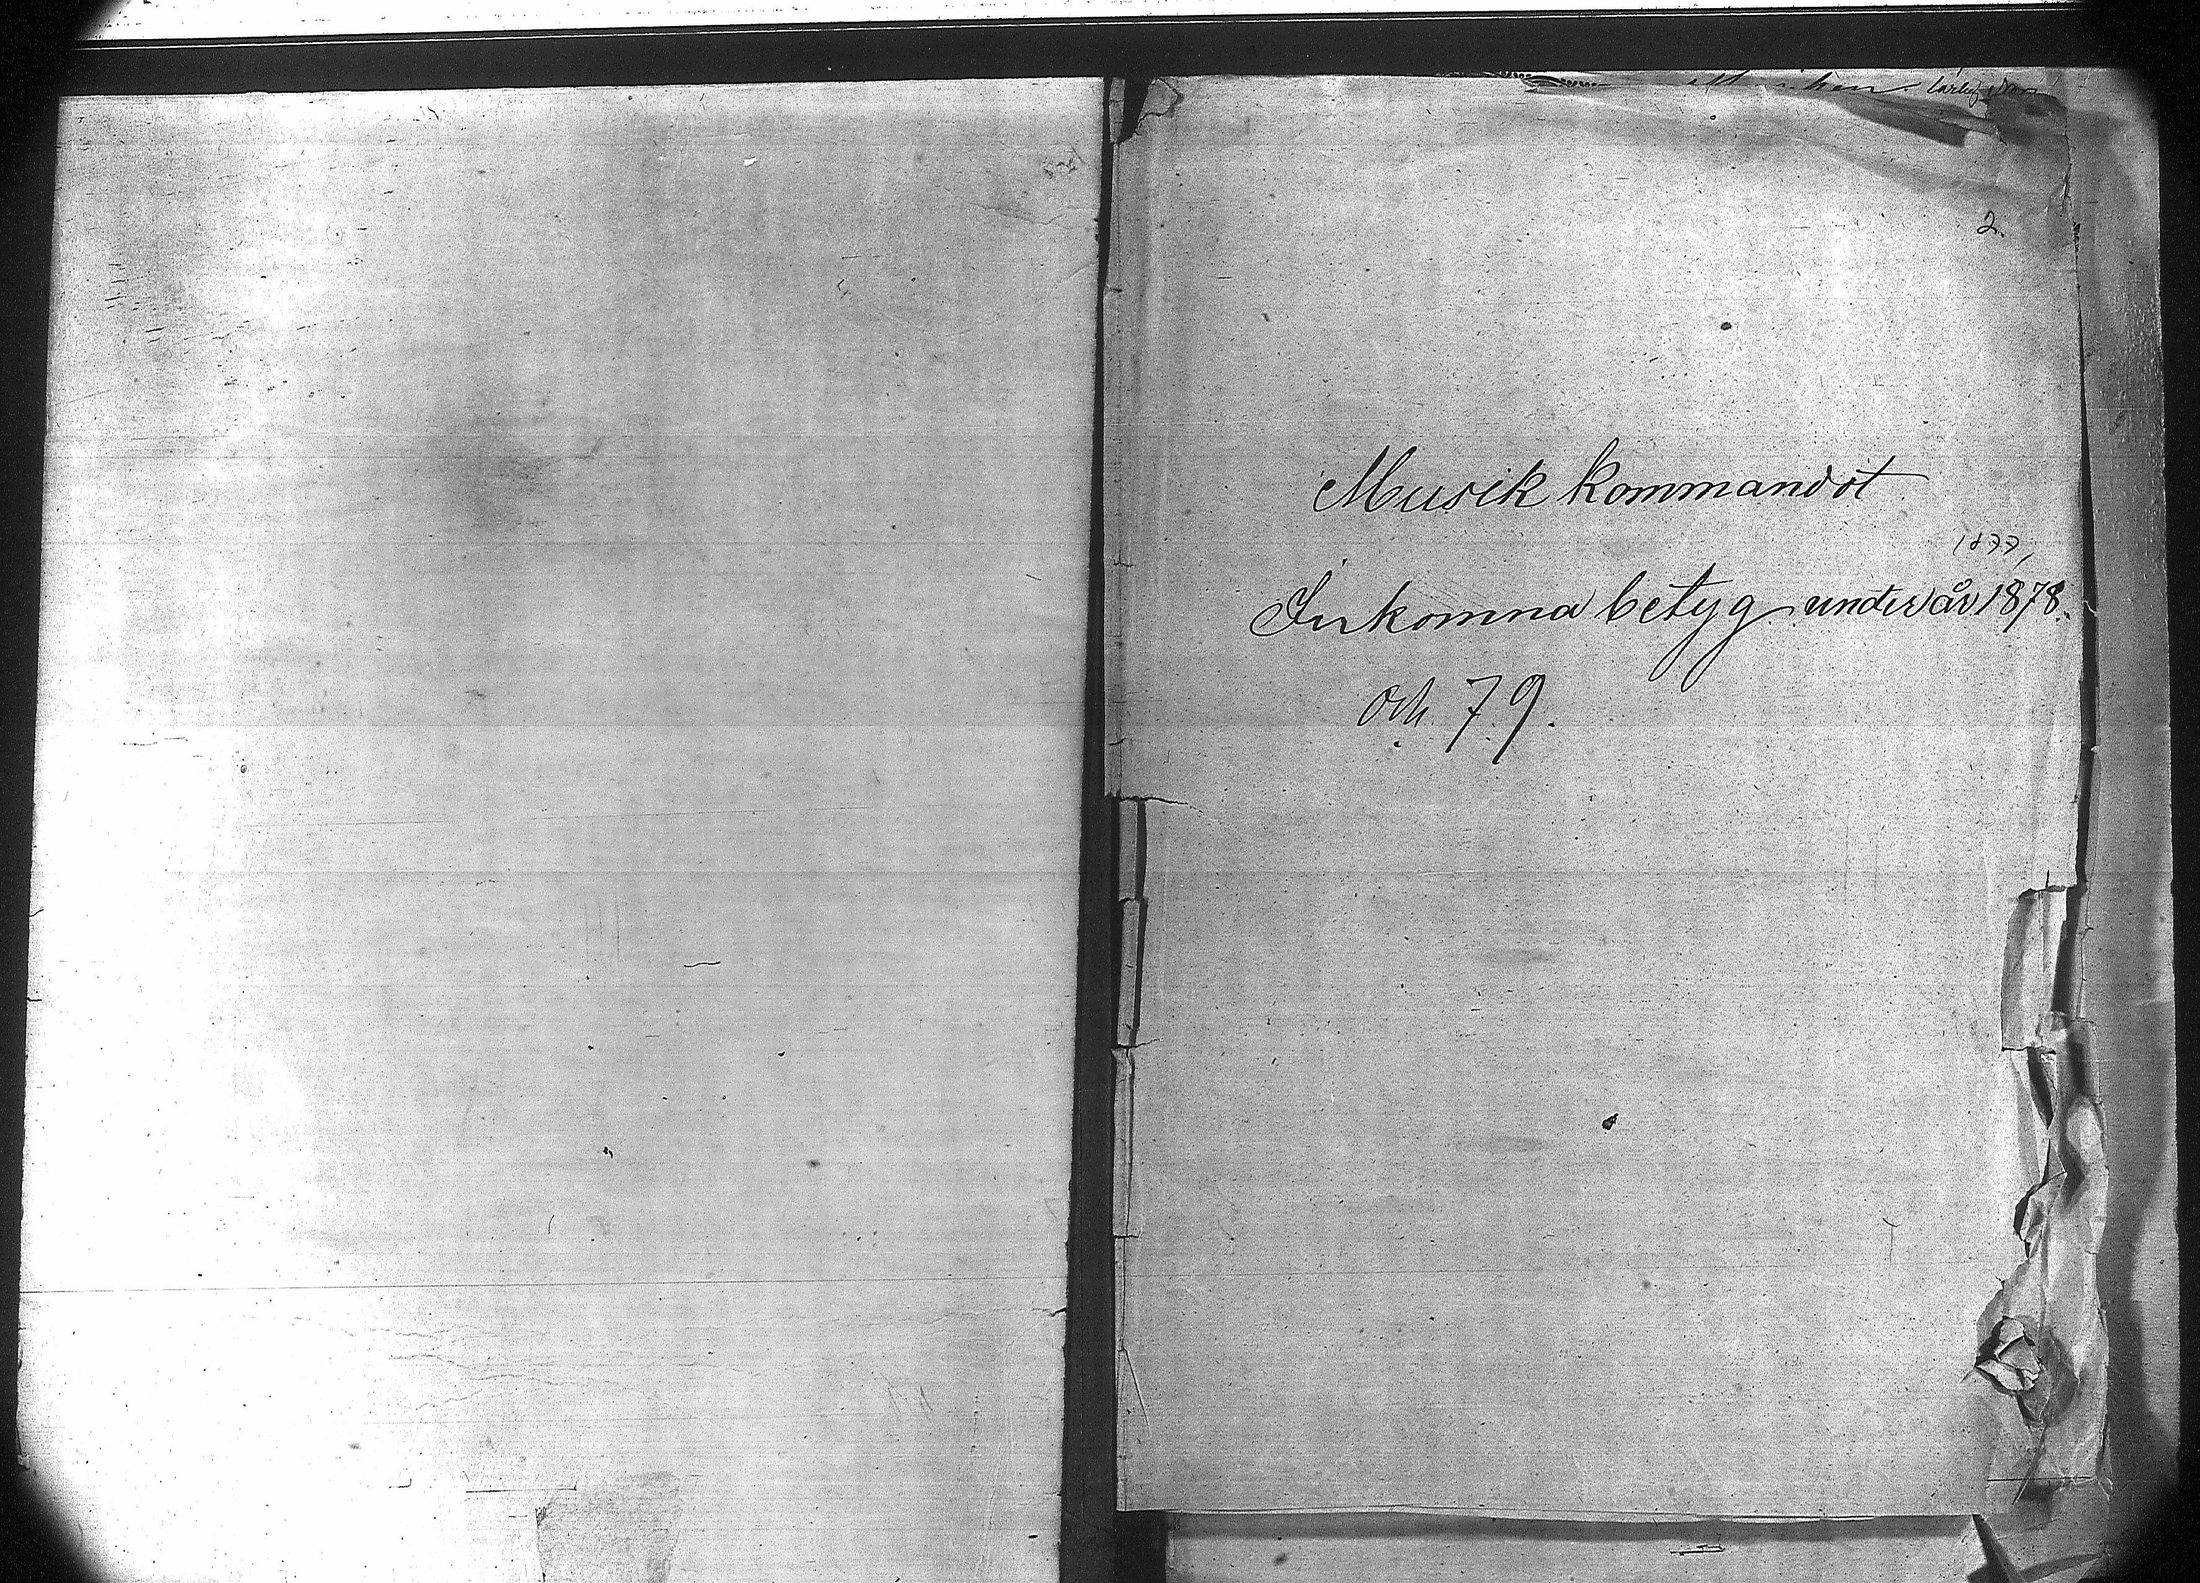 2.
Musik kommandot
1877,
Inkomna betyg under år 1878.
och 79.